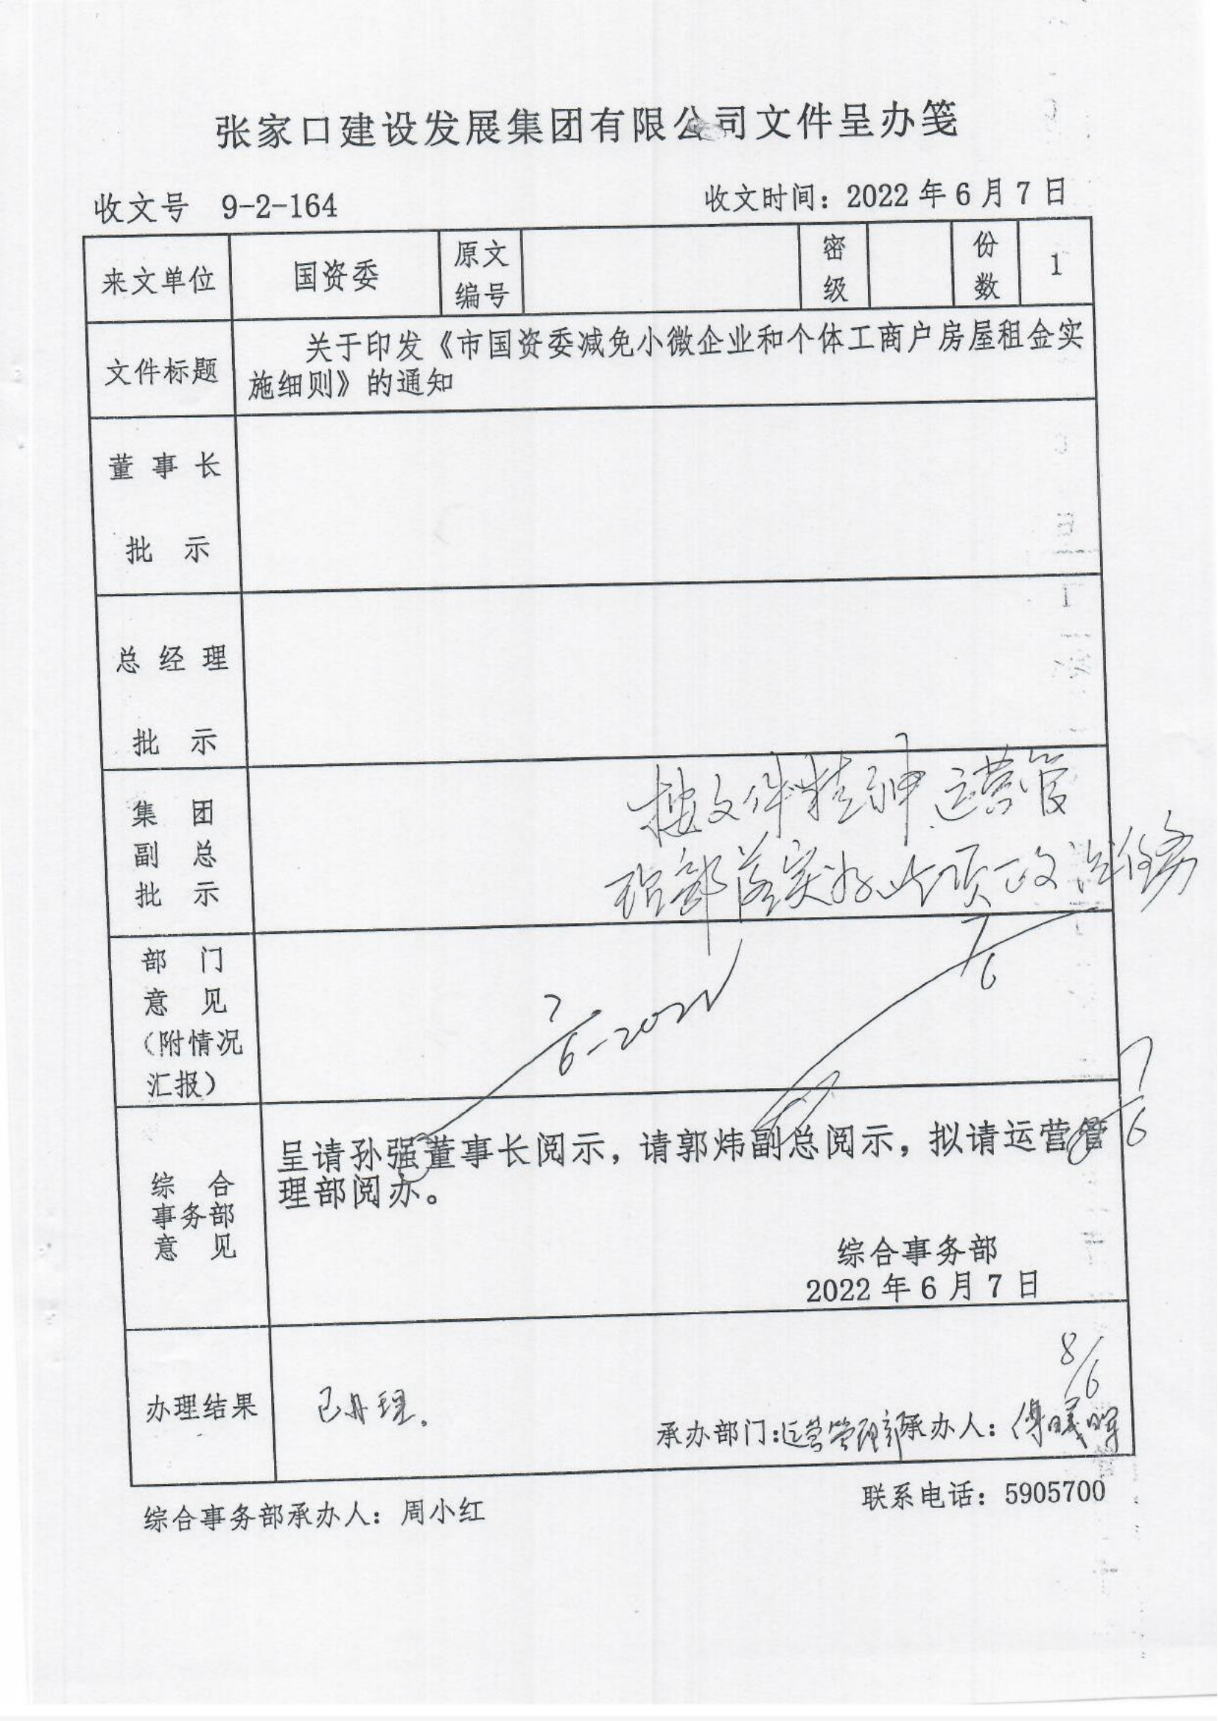 张家口建设发展集团有限公司文件呈办笺
收文号 9-2-164 收文时间：2022年6月7日
来文单位 国资委 原文编号 密级 份数 1
文件标题 关于印发《市国资委减免小微企业和个体工商户房屋租金实
施细则》的通知
董事长
批示
总经理
批示
集团
副总
批示
按文件精神运营管
理部落实好此项政治任务
7/6
部门
意见
（附情况
汇报）
7/6-2022
7/6
综合
事务部
意见
呈请孙强董事长阅示，请郭炜副总阅示，拟请运营管
理部阅办。
综合事务部
2022年6月7日
办理结果 已办理。
8/6
承办部门：运营管理部 承办人：傅曦晖
综合事务部承办人：周小红 联系电话：5905700